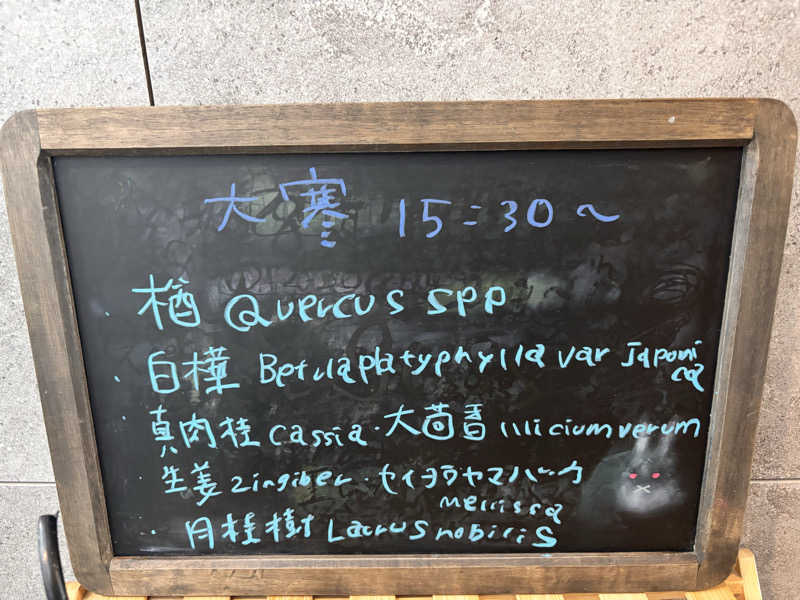 大寒 15:30～
・楢 Quercus spp
・白樺 Betula platyphylla var Japoni
ca
・真肉桂 cassia・大茴香 illicium verum
・生姜 zingiber・セイヨウヤマハッカ
merrissa
・月桂樹 Laurus nobiris